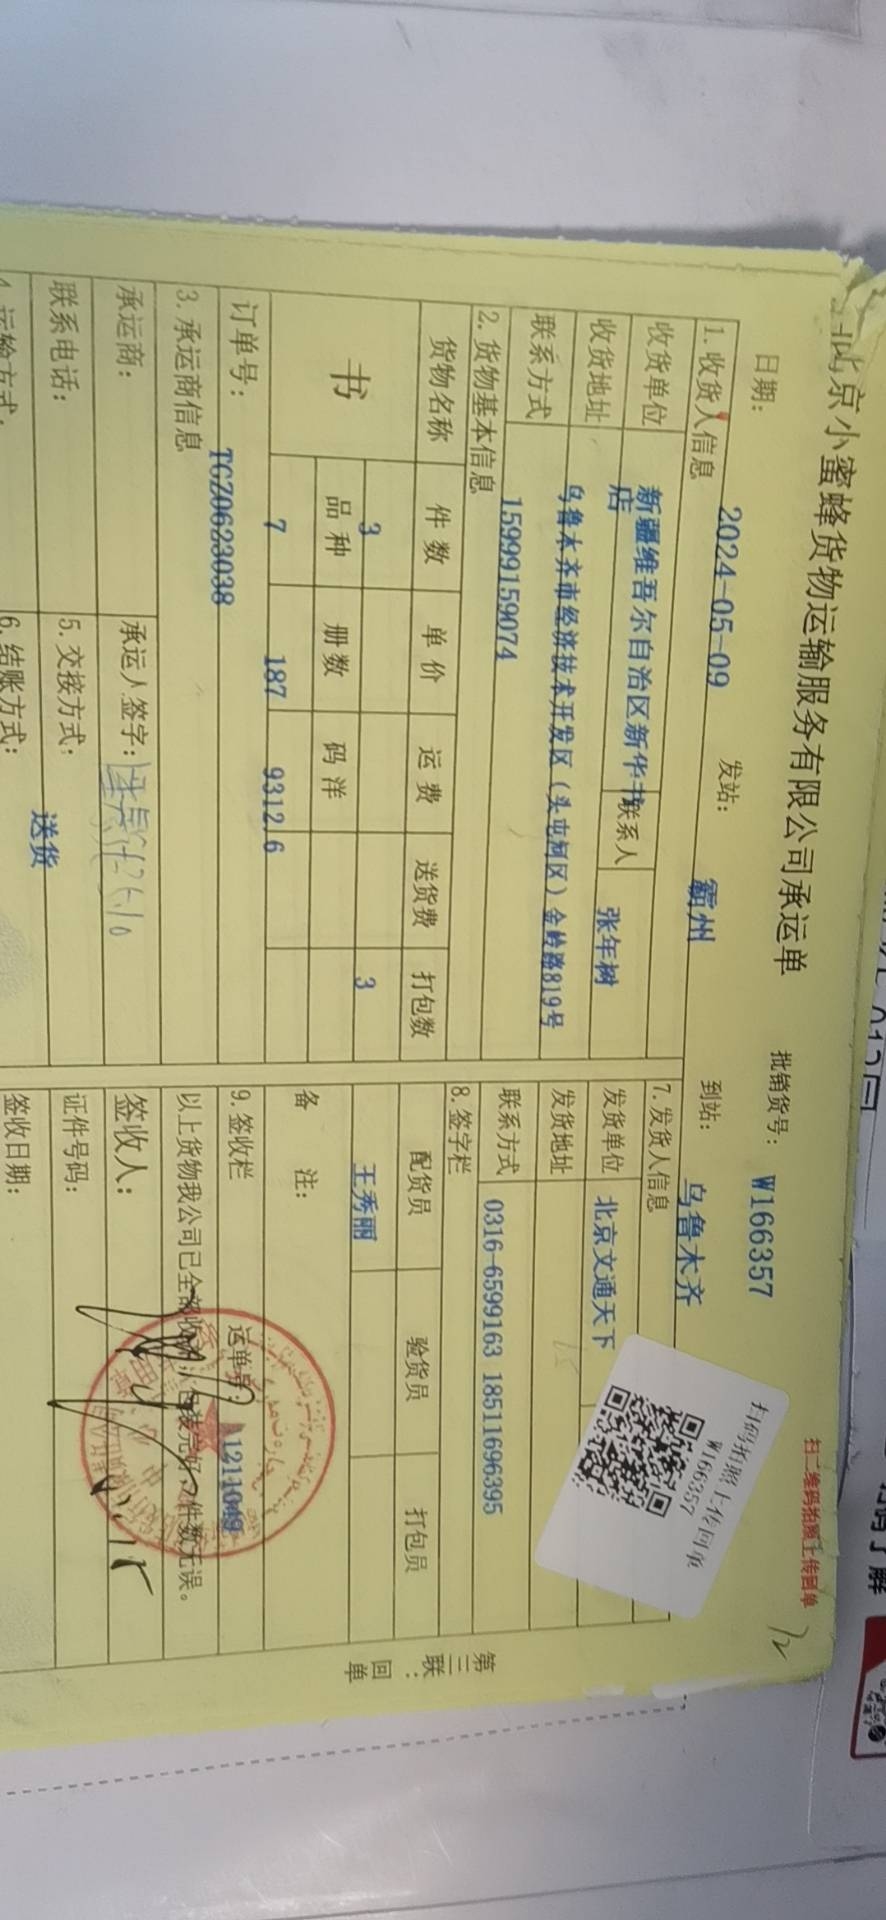 北京小蜜蜂货物运输服务有限公司承运单
扫二维码拍照上传回单
日期: 2024-05-09 发站: 霸州 到站: 乌鲁木齐 批销货号: W166357
扫码拍照上传回单
W166357
1. 收货人信息
收货单位 新疆维吾尔自治区新华书店 联系人 张年树
收货地址 乌鲁木齐市经济技术开发区(头屯河区)金岭路819号
联系方式 15999159074
2. 货物基本信息
货物名称 件数 单价 运费 送货费 打包数
书 3 3
品种 册数 码洋
7 187 9312.6
订单号: TGZ0623038
3. 承运商信息
承运商: 承运人签字:
联系电话: 5. 交接方式: 送货
4. 运输方式: 6. 结账方式:
7. 发货人信息
发货单位 北京文通天下
发货地址
联系方式 0316-6599163 18511696395
8. 签字栏
配货员 验货员 打包员
王秀丽
备 注:
9. 签收栏 运单号: A1211049
以上货物我公司已全部收到,包装完好,件数无误。
签收人:
证件号码:
签收日期:
第三联:回单